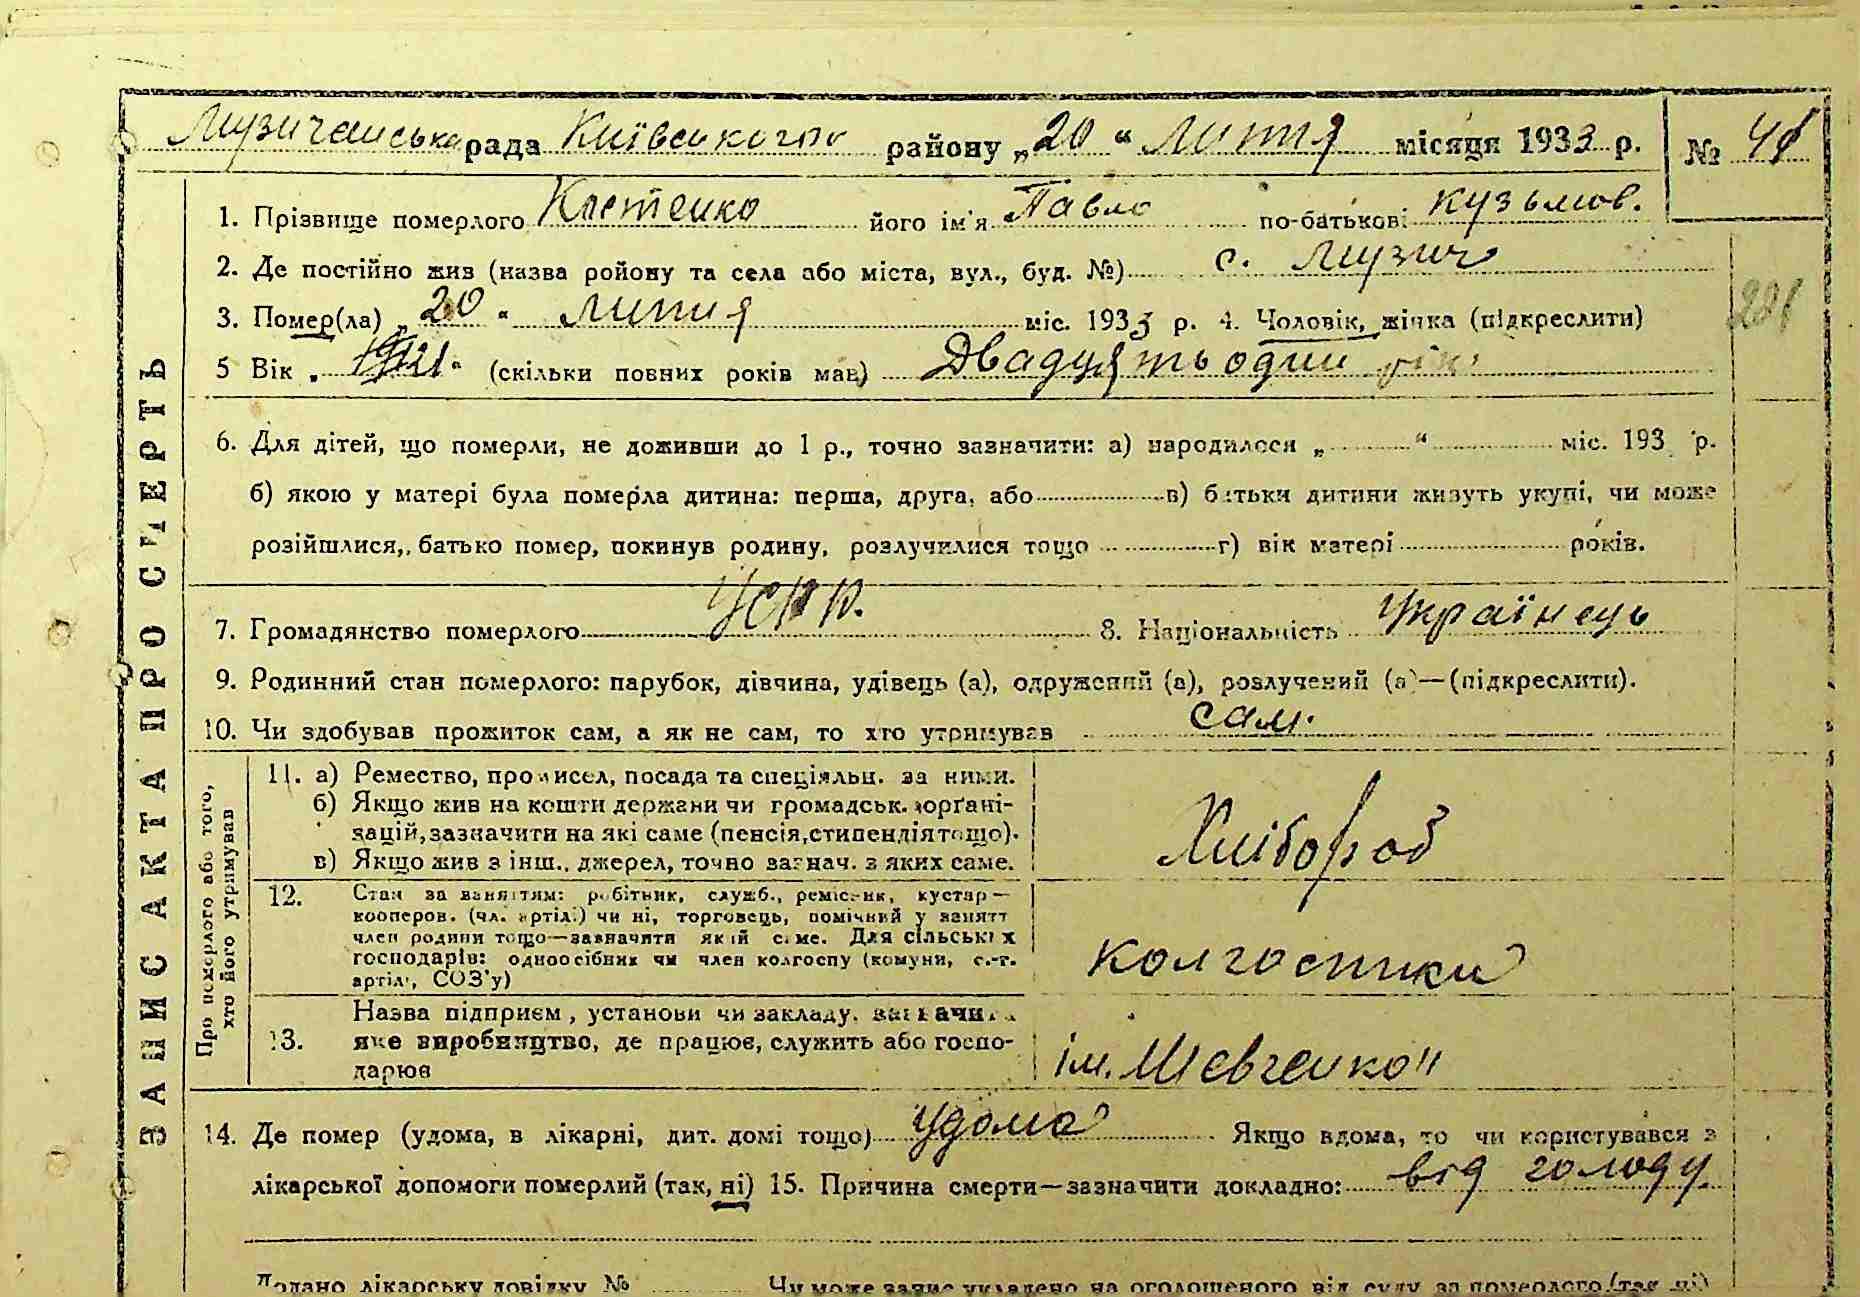 Музичанська рада Київського району „20“ липня місяця 1933 р. № 41
1. Прізвище померлого Костенко його ім'я Павло по-батькові Кузьмов.
2. Де постійно жив (назва ройону та села або міста, вул., буд. №) с. Музич
3. Помер(ла) „20“ липня міс. 1933 р. 4. Чоловік, жінка (підкреслити)
221
5 Вік „21“ (скільки повних років мав) Двадцять один рік
6. Для дітей, що померли, не доживши до 1 р., точно зазначити: а) народилося „ “ міс. 193 р.
б) якою у матері була померла дитина: перша, друга, або в) батьки дитини живуть укупі, чи може
розійшлися, батько помер, покинув родину, розлучилися тощо г) вік матері років.
7. Громадянство померлого УСРР. 8. Національність Українець
9. Родинний стан померлого: парубок, дівчина, удівець (а), одружений (а), розлучений (а)—(підкреслити).
10. Чи здобував прожиток сам, а як не сам, то хто утримував сам.
ЗАПИС АКТА ПРО СМЕРТЬ
Про померлого або того,
хто його утримував
11. а) Ремество, промисел, посада та спеціяльн. за ними.
б) Якщо жив на кошти держави чи громадськ. орґані-
зацій, зазначити на які саме (пенсія, стипендія тощо).
в) Якщо жив з інш., джерел, точно зазнач. з яких саме.
Хлібороб
12. Стан за заняттям: робітник, служб., ремісник, кустар—
кооперов. (чл. артілі) чи ні, торговець, помічний у занятт
член родини тощо—зазначити який саме. Для сільських
господарів: одноосібник чи член колгоспу (комуни, с.-г.
артілі, СОЗ'у)
колгоспник
13. Назва підприєм, установи чи закладу, зазначити
яке виробництво, де працює, служить або госпо-
дарює
ім. Шевченко"
14. Де помер (удома, в лікарні, дит. домі тощо) удома Якщо вдома, то чи користувався з
лікарської допомоги померлий (так, ні) 15. Причина смерти—зазначити докладно: від голоду
Додано лікарську довідку № Чи може запис укладено на оголошеного від суду за померлого (так ні)